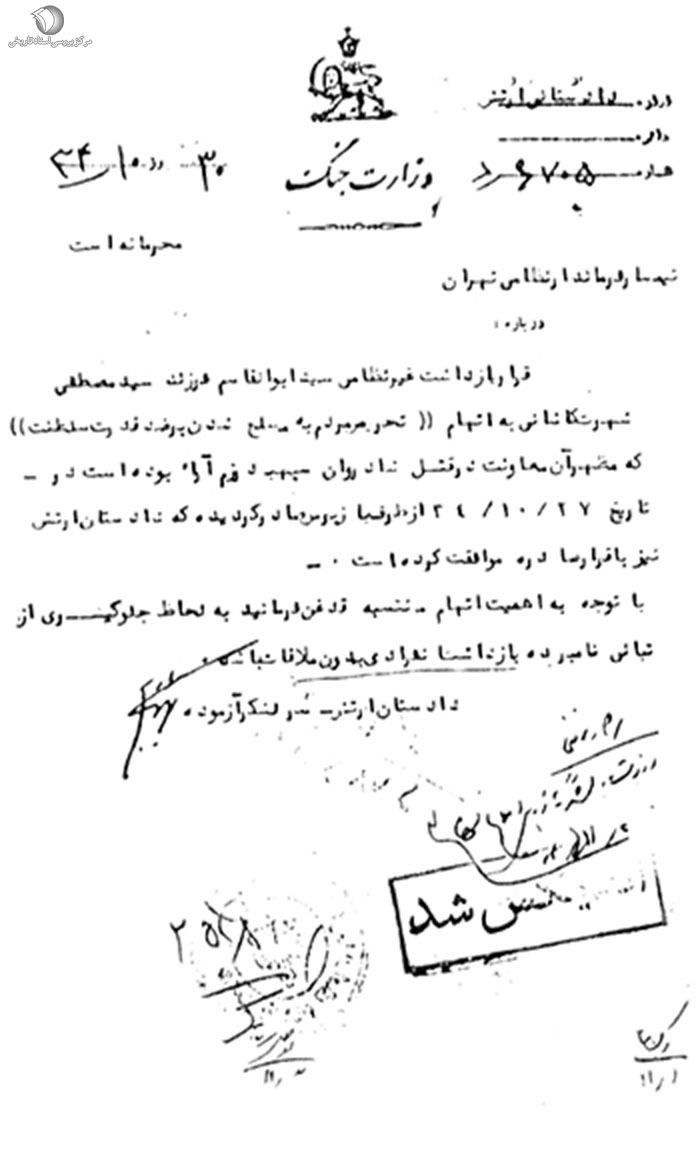 مرکز بررسی اسناد تاریخی
اداره دادستانی ارتش
دایره
شماره ۶۷۰۵
وزارت جنگ
۳۴/۱۰/۳۰
محرمانه است
تیمسار فرماندار نظامی تهران
درباره :
قرار بازداشت غیرنظامی سید ابوالقاسم فرزند سید مصطفی
شهرت کاشانی به اتهام (( تحریص مردم به مسلح شدن بر ضد قدرت سلطنت ))
که مظهر آن معاونت در قتل شادروان سپهبد رزم آراء بوده است در –
تاریخ ۲۷ / ۱۰ / ۳۴ از طرف بازپرس صادر گردیده که دادستان ارتش
نیز با قرار صادره موافقت کرده است . –
با توجه به اهمیت اتهام منتسبه قدغن فرمائید به لحاظ جلوگیری از
تبانی نامبرده بازداشت انفرادی بدون ملاقات باشد .
دادستان ارتش – سرلشکر آزموده
شد